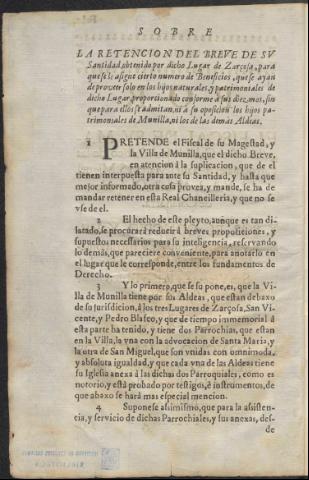 SOBRE
LA RETENCION DEL BREVE DE SV
Santidad, obtenido por dicho Lugar de Zarçosa, para
que se le asigne cierto numero de Beneficios, que se ayan
de proveer solo en los hijos naturales, y patrimoniales de
dicho Lugar, proporcionado conforme à sus diezmos, sin
que para ellos se admitan, ni à su oposicion los hijos pa-
trimoniales de Munilla, ni los de las demàs Aldeas.
1 PRETENDE el Fiscal de su Magestad, y
la Villa de Munilla, que el dicho Breve,
en atencion à la suplicacion, que de el
tienen interpuesta para ante su Santidad, y hasta que
mejor informado, otra cosa provea, y mande, se ha de
mandar retener en esta Real Chancilleria, y que no se
vse de el.
2 El hecho de este pleyto, aunque es tan di-
latado, se procurarà reducir à breves proposiciones, y
supuestos necessarios para su inteligencia, reservando
lo demàs, que pareciere conveniente, para anotarlo en
el lugar que le corresponde, entre los fundamentos de
Derecho.
3 Y lo primero, que se supone, es, que la Vi-
lla de Munilla tiene por sus Aldeas, que estàn debaxo
de su jurisdicion, à los tres Lugares de Zarçosa, San Vi-
cente, y Pedro Blasco, y que de tiempo immemorial à
esta parte ha tenido, y tiene dos Parrochias, que estàn
en la Villa, la vna con la advocacion de Santa Maria, y
la otra de San Miguel, que son vnidas con omnimoda,
y absoluta igualdad, y que cada vna de las Aldeas tiene
su Iglesia anexa à las dichas dos Parroquiales, como es
notorio, y està probado por testigos, è instrumentos, de
que abaxo se harà mas especial mencion.
4 Suponese asimismo, que para la asisten-
cia, y servicio de dichas Parrochiales, y sus anexas, des-
de
BIBLIOTECA